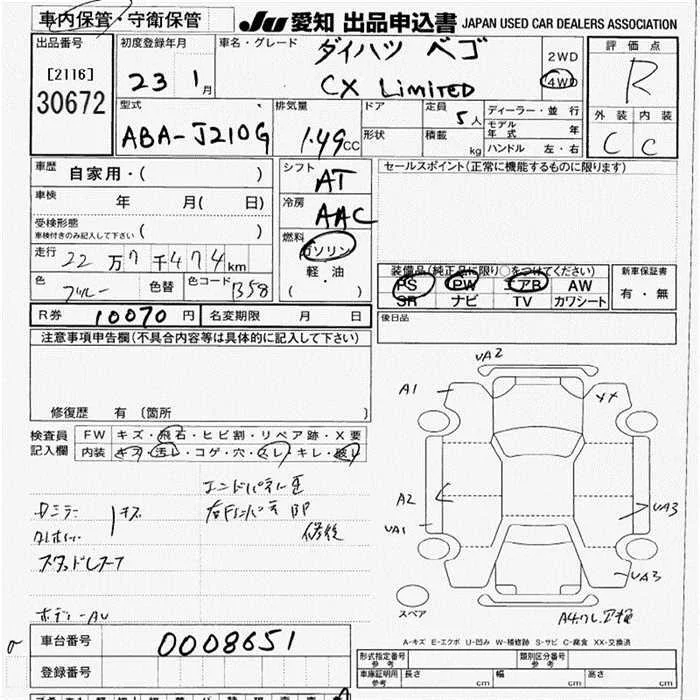 車内保管・守衛保管
JU 愛知 出品申込書 JAPAN USED CAR DEALERS ASSOCIATION
出品番号
[2116]
30672
初度登録年月
23 1月
車名・グレード
ダイハツ ベゴ
CX LIMITED
2WD
4WD
評価点
R
外装 内装
C C
型式
ABA-J210G
排気量
1.49CC
ドア
形状
定員
5人
積載
kg
ディーラー・並行
モデル年式 年
ハンドル 左・右
車歴
自家用・( )
車検
年 月( 日)
受検形態
車検付きのみ記入して下さい ( )
走行
22万7千474km
色
ブルー
色替
色コード
B58
シフト
AT
冷房
AAC
燃料
ガソリン
軽・油
( ・ )
セールスポイント(正常に機能するものに限ります)
装備品(純正品に限り○をつけてください)
PS PW エアB AW
SR ナビ TV カワシート
新車保証書
有・無
後日品
R券 10070円
名変期限 月 日
注意事項申告欄(不具合内容等は具体的に記入して下さい)
修復歴 有 〔箇所 〕
検査員
記入欄
FW キズ・飛石・ヒビ割・リペア跡・X要
内装 キズ・汚レ・コゲ・穴・スレ・キレ・破レ
キズ
修後
スタッドレス
ボディーAU
UA2
A1
XX
A2
UA1
UA3
UA3
スペア
A-キズ E-エクボ U-凹み W-補修跡 S-サビ C-腐食 XX-交換済
車台番号
0008651
登録番号
形式指定番号
参考
類別区分番号
参考
車庫証明用
参考
長さ cm 幅 cm 高さ cm